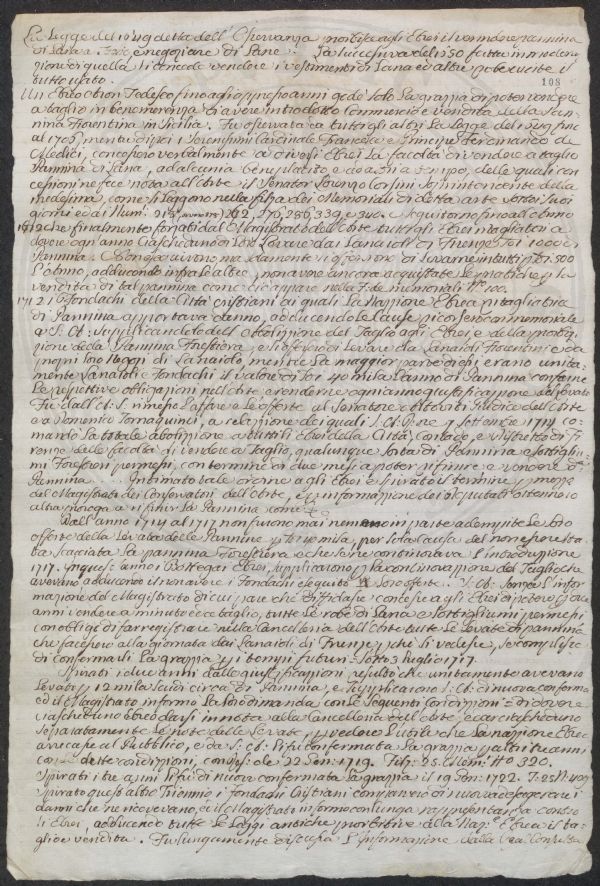 La Legge del 1649 detta dell' Osservanza proibisce agli Ebrei il vendere pannina
di Lana a Taglio e negoziare di Lane. La successiva del 1650 fatta in moderazione
zione di quella li concede vendere i vestimenti di Lana ed altre robe cucite il
tutto usato.
108
Un Ebreo Tedesco fino agli anni gode solo La grazia di poter vendere
a taglio in benemerenza di avere introdotto Commercio e vendita della Pannina
nina Fiorentina in Sicilia. Fu osservata da tutti gli altri La Legge del 1649 fino
al 1705 mentre dipoi i Serenissimi Cardinale Francesco e Principe Ferdinando de
Medici, concessero verbalmente a diversi Ebrei La facoltà di vendere a taglio
Pannina di Lana, ad alcuni a beneplacito e ad altri a tempo, delle quali con
cessioni ne fece nota all'Arte il Senator Lorenzo Corsini Soprintendente della
medesima, come si leggono nella filza dei Memoriali di detta arte sotto i suoi
giorni ed ai Num. 262, 276, 286, 339, e 340. e seguitorno fino all'anno
1712 che finalmente forzati dal Magistrato dell'Arte tutti gli Ebrei tagliatori a
dovere ogni anno Ciascheduno di Loro Levare dai Lanaioli di Firenze 1000 di
Pannina. 500
L'anno, adducendo infra le altre, non avere ancora acquistate Le pratiche per la
vendita di tal pannina come ciò appare nella F. de memoriali N. 100.
1712 i Fondachi della Città cristiani ai quali La Nazzione Ebrea pi tagliatrice
di Pannina apportava danno, adducendo le cause ricorsero con memoriale
a S. A. supplicandolo dell'abolizione del Taglio agli Ebrei, e della proibi
zione della Pannina Forestiera, e si offerirno di Levare da Lanaioli Fiorentini e da
ogni loro di Lanaiolo, mentre La maggior parte di essi erano unita
mente Lanaioli e Fondachi il valore di 40 mila L'anno di Pannina con farne
Le respettive obbligazioni nell'Arte e renderne ogni anno giustificazione del Levato
Fu dall'A. S. rimesso L'affare e Le offerte al Senatore Altoviti Giudice dell'Arte
e a Domenico Tornaquinci, a relazione dei quali S. A. R. ne 7 Settembre 1714 co
mandò La totale abolizione a tutti li Ebrei della Città, Contado, e Distretto di Fi
renze della facoltà di vendere a Taglio, qualunque Sorta di Pannina e Sottigliu
mi Forestieri permessi, con termine di due mesi a poter rifinire e vendere d.a
Pannina. Intimato tale ordine agli Ebrei e spirato il termine per mezzo
del Magistrato dei Conservatori dell'Arte, e per informazione dei Deputati ottennero
altra proroga a rifinir La Pannina come
Dall'anno 1714 al 1717 non furono mai nemmeno in parte adempite Le Loro
offerte della Levata delle Pannine per 40 mila, per sola causa del non essere sta
ta scacciata La pannina Forestiera e che se ne continovava l'introduzzione
1717. In quest'anno i Bottegai Ebrei supplicorono per la continovazione del Taglio che
avevano adducendo il non avere i Fondachi eseguito Le Loro offerte. S. A. sentita l'infor
mazione del Magistrato di cui pare che si fidasse concesse agli Ebrei di potere per due
anni vendere a minuto ed a taglio, tutte Le robe di Lana e Sottigliumi permessi
con obbligo di far registrare nella Cancelleria dell'Arte tutte Le Levate di pannina
che facessero alla giornata dai Lanaioli di Firenze perchè si vedesse, se complisse
di confermarli La grazia per i tempi futuri. Sotto 3 Luglio 1717.
Spirati i due anni dalle giustificazioni resultò che unitamente avevano
Levato per 12 mila scudi circa di Pannina, e supplicarono S. A. di nuova conferma
ed il Magistrato informò La loro dimanda con le seguenti condizioni di dovere
ciascheduno Ebreo darsi in nota alla Cancelleria dell'Arte, e a ciascheduno
separatamente Le note delle Levate, per vedere L'utile che La nazione Ebrea
arrecasse al Pubblico, e da S. A. Li fu confermata La grazia per altri tre anni
con dette condizioni, de 22 Gen. 1719. Filz. 25. N. 320.
Spirati i tre anni Li fu di nuovo confermata La grazia il 19 Gen. 1722. F. 25 N. 409
Spirato quest'altro Triennio i fondachi Cristiani comparirno di nuovo ad esagerare i
danni che ne ricevevano, ed il Magistrato informò con lunga rappresentanza contro
li Ebrei, adducendo tutte Le Leggi antiche proibitive alla Naz.e Ebrea il ta
glio e vendita. Fu lungamente discussa L'Informazione dalla Real Consulta